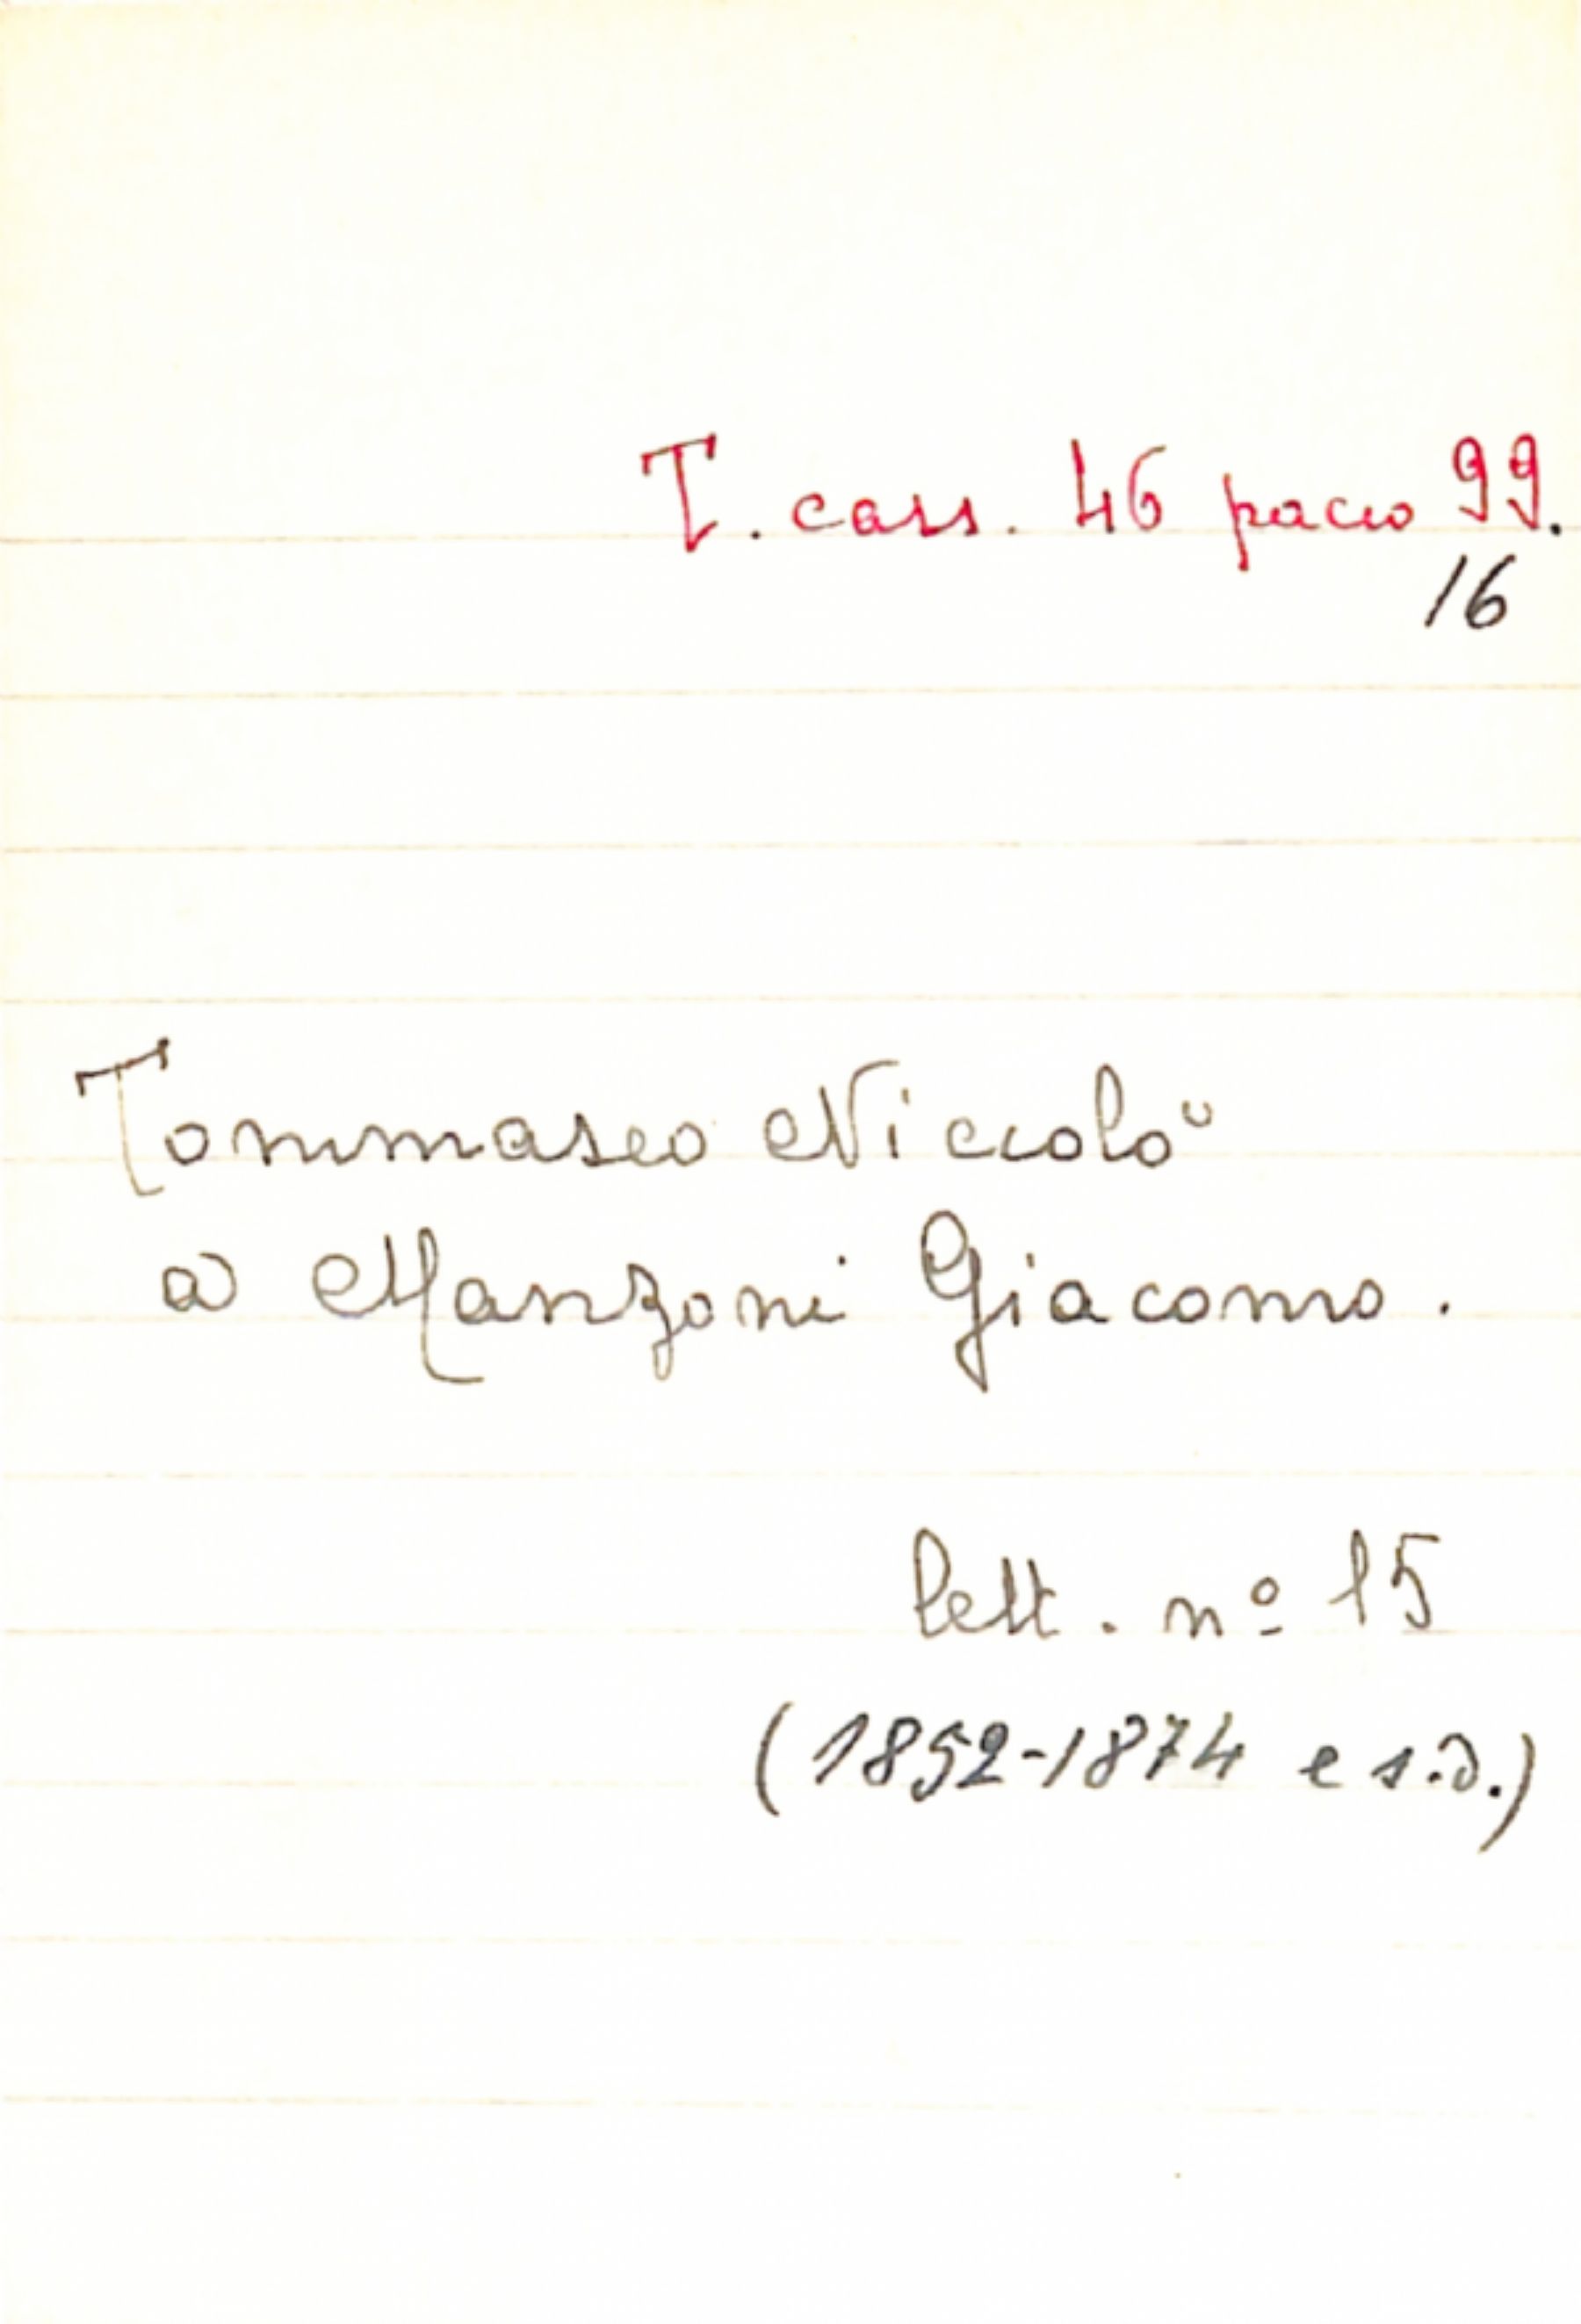 T. cass. 46 pacco 99.
16
Tommaseo Niccolò
a Manzoni Giacomo.
lett. nº 15
(1852-1874 e s.d.)